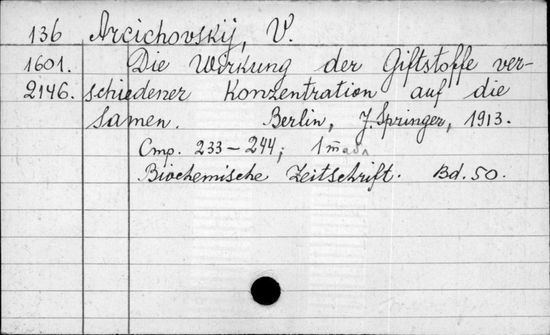 136 Arcichovskij, V.
1601. Die Wirkung der Giftstoffe ver-
2146. schiedener Konzentration auf die
Samen. Berlin, J. Springer, 1913.
Стр. 233-244; 1 табл
Biochemische Zeitschrift. Bd. 50.